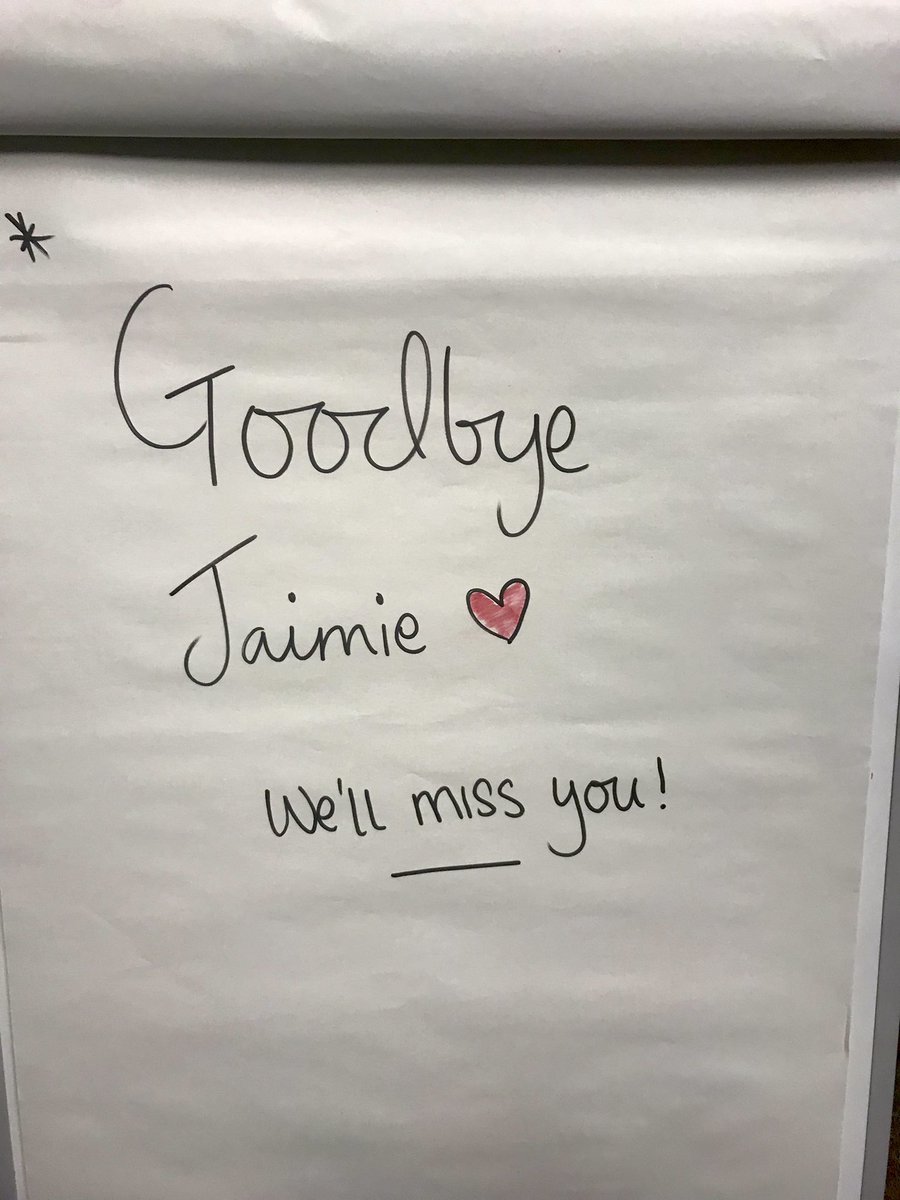 *
Goodbye
Jaimie ♥
We'll miss you!